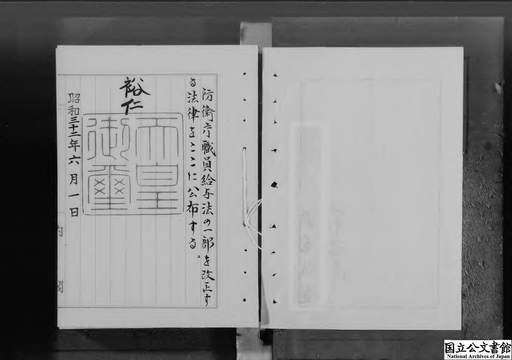 防衛庁職員給与法の一部を改正す
る法律をここに公布する。
裕仁
天皇
御璽
昭和三十二年六月一日
内閣
国立公文書館
National Archives of Japan